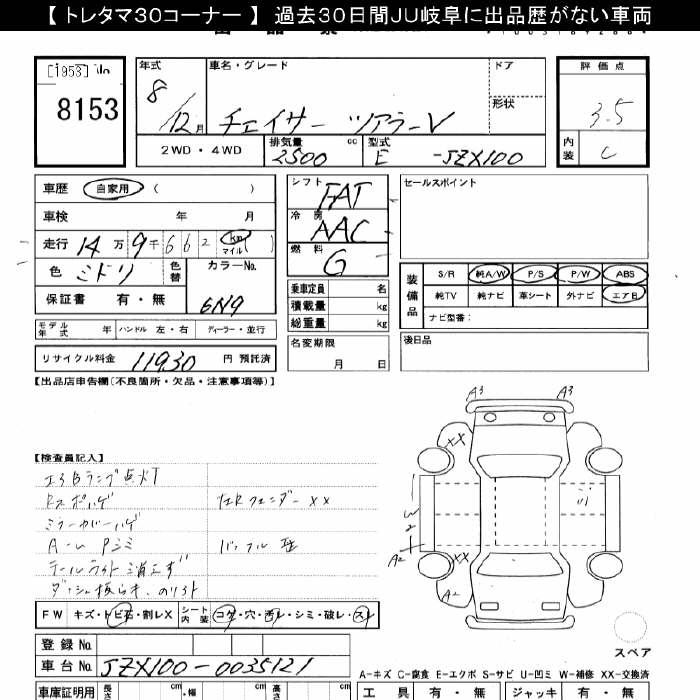 【 トレタマ30コーナー 】 過去30日間JU岐阜に出品歴がない車両
[1953] No
8153
年式
8/12月
車名・グレード
チェイサー ツアラーV
ドア
形状
評価点
3.5
内装
C
2WD・4WD
排気量 cc
2500
型式
E -JZX100
車歴 自家用 ( )
車検 年 月
走行 14万9千662 km マイル ( )
色 ミドリ
色替
カラーNo.
6N9
保証書 有・無
モデル年式 年 ハンドル 左・右 ディーラー・並行
リサイクル料金 11930 円 預託済
シフト
FAT
冷房
AAC
燃料
G
乗車定員 名
積載量 kg
総重量 kg
名変期限
月 日
セールスポイント
装備品
S/R 純A/W P/S P/W ABS
純TV 純ナビ 革シート 外ナビ エアB
ナビ型番:
後日品
【出品店申告欄(不良箇所・欠品・注意事項等)】
【検査員記入】
エアBランプ点灯
Rスポハゲ
左Rフェンダー XX
ミラーカバーハゲ
テールライト消エず
A3
A3
XX
W2
A2
XX
A2
FW キズ・トビ石・割レX
シート内装 コゲ・穴・汚レ・シミ・破レ・スレ
登録No.
車台No. JZX100-0035121
車庫証明用 長さ cm ・幅 cm 高さ cm
スペア
A-キズ C-腐食 E-エクボ S-サビ U-凹ミ W-補修 XX-交換済
工具 有・無 ジャッキ 有・無